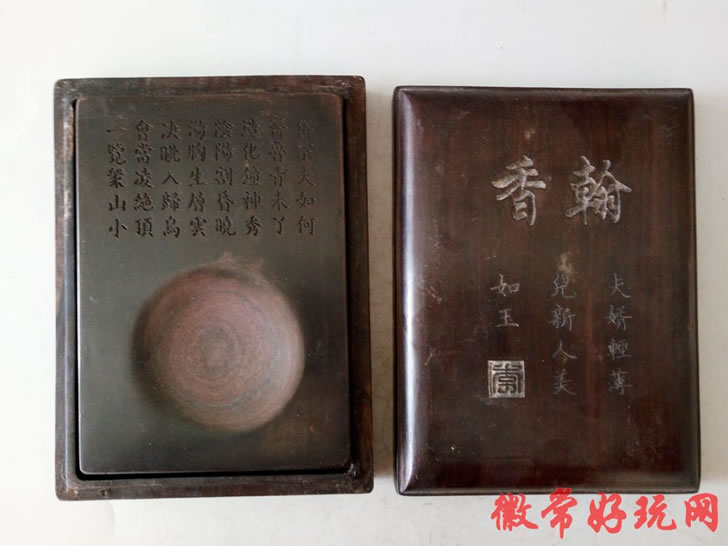 岱宗夫如何
齊魯青未了
造化鍾神秀
陰陽割昏曉
盪胸生層雲
決眦入歸鳥
會當凌絶頂
一覽衆山小
翰香
夫婿輕薄
兒新人美
如玉
徽常好玩网